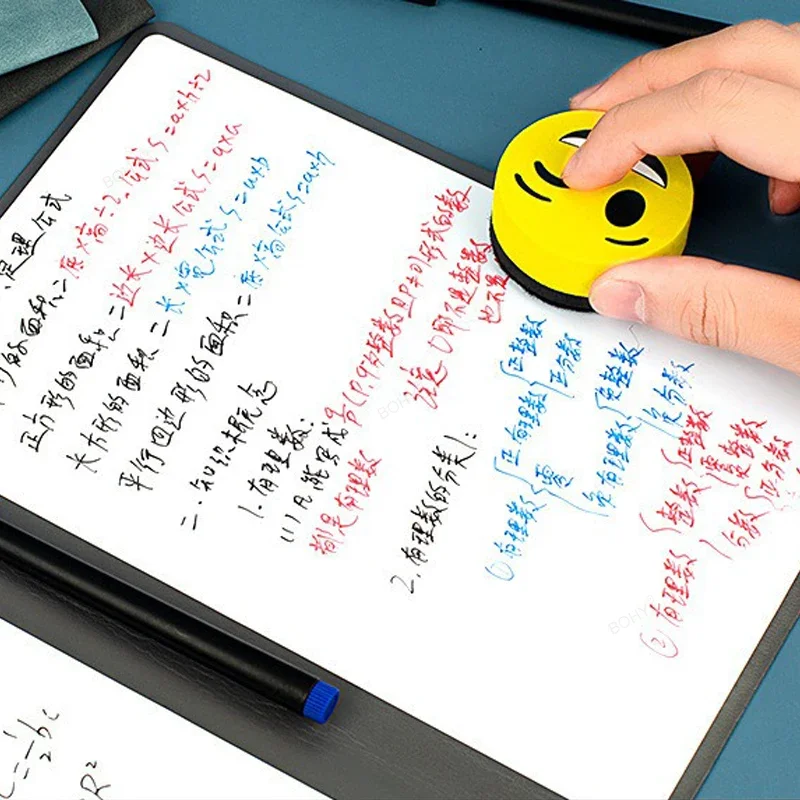 定理公式
的面积=底×高÷2.公式S=a×h÷2
正方形的面积=边长×边长 公式S=a×a
长方形的面积=长×宽 公式S=a×b
平行四边形的面积=底×高 公式S=a×h
二.知识概念
1.有理数:
(1)凡能写成 形式的数
都是有理数
注意:0即不是整数
也不是
2.有理数的分类:
①有理数 正有理数 正整数 正分数
零
负有理数 负整数 负分数
②有理数 整数 正整数 零 负整数
分数 正分数
BOHY
R²